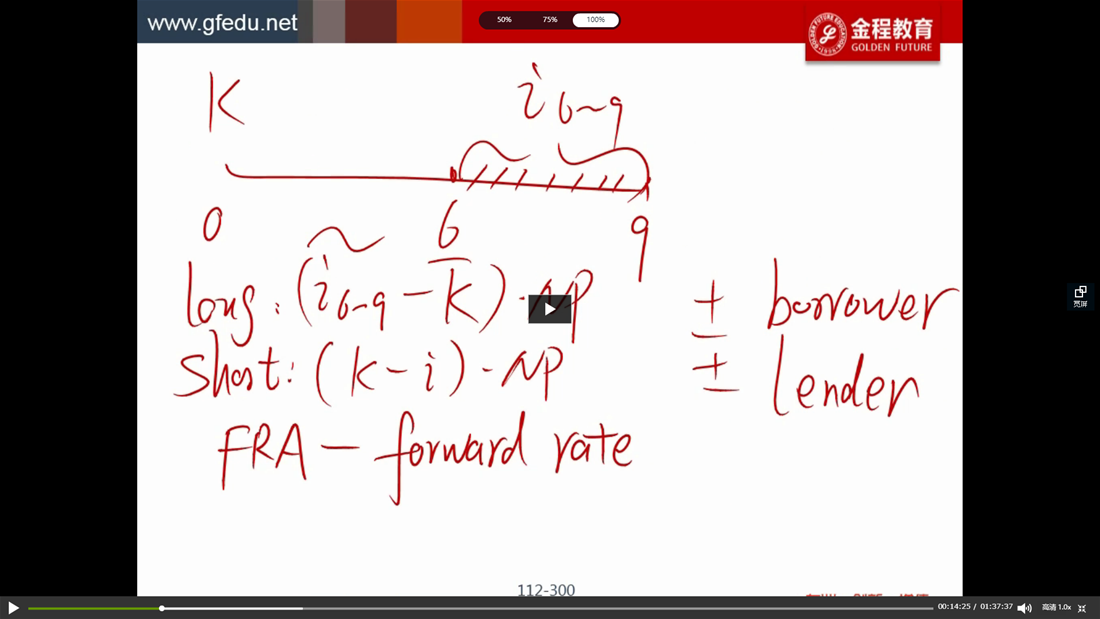 www.gfedu.net
50% 75% 100%
金程教育
GOLDEN FUTURE
K
i 6~9
0 6 9
long: (i 6-9 - K) · NP ± borrower
Short: (K - i) · NP ± lender
FRA — forward rate
112-300
宽屏
00:14:25 / 01:37:37 高清 1.0x